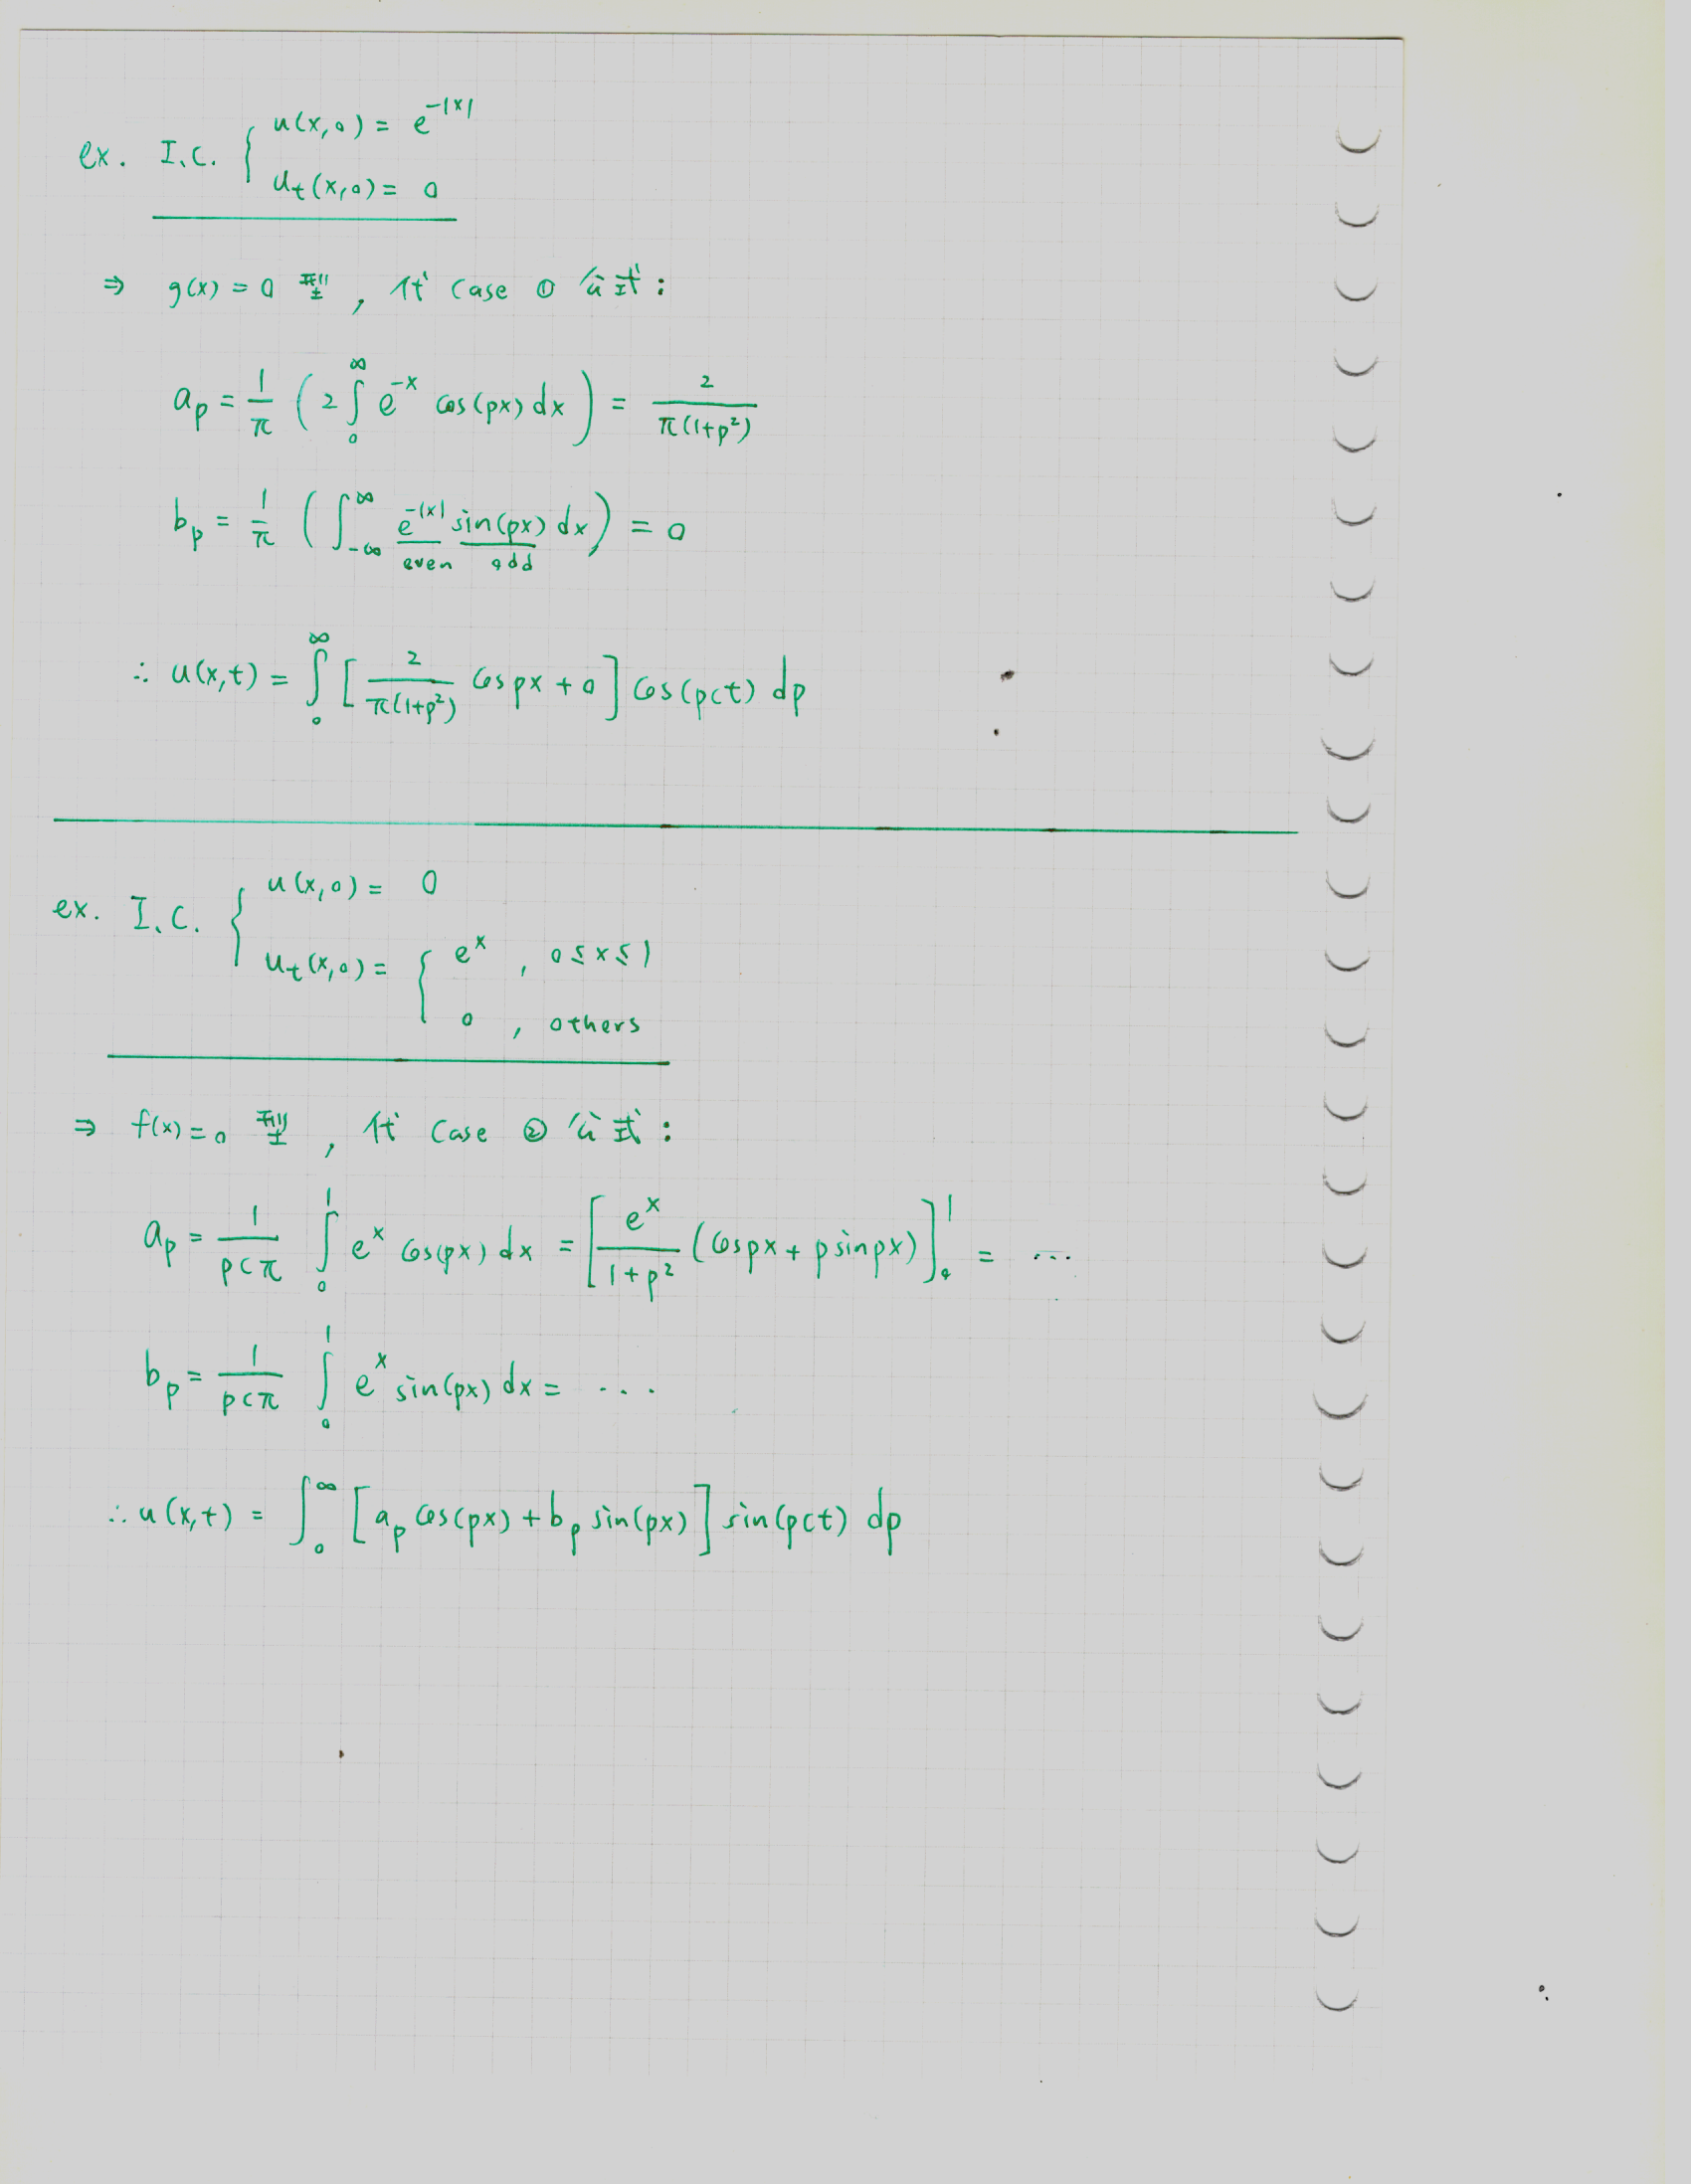 ex. I.C. { u(x,0) = e^{-|x|}
u_t(x,0) = 0
⇒ g(x) = 0 型 , 代 case ① 公式 :
a_p = \frac{1}{π} ( 2 ∫_0^∞ e^{-x} cos(px) dx ) = \frac{2}{π(1+p^2)}
b_p = \frac{1}{π} ( ∫_{-∞}^{∞} e^{-|x|} sin(px) dx ) = 0
even odd
∴ u(x,t) = ∫_0^∞ [ \frac{2}{π(1+p^2)} cos px + 0 ] cos(pct) dp
ex. I.C. { u(x,0) = 0
u_t(x,0) = { e^x , 0 ≤ x ≤ 1
0 , others
⇒ f(x) = 0 型 , 代 case ② 公式 :
a_p = \frac{1}{pcπ} ∫_0^1 e^x cos(px) dx = [ \frac{e^x}{1+p^2} (cos px + p sin px) ]_0^1 = ...
b_p = \frac{1}{pcπ} ∫_0^1 e^x sin(px) dx = ...
∴ u(x,t) = ∫_0^∞ [ a_p cos(px) + b_p sin(px) ] sin(pct) dp